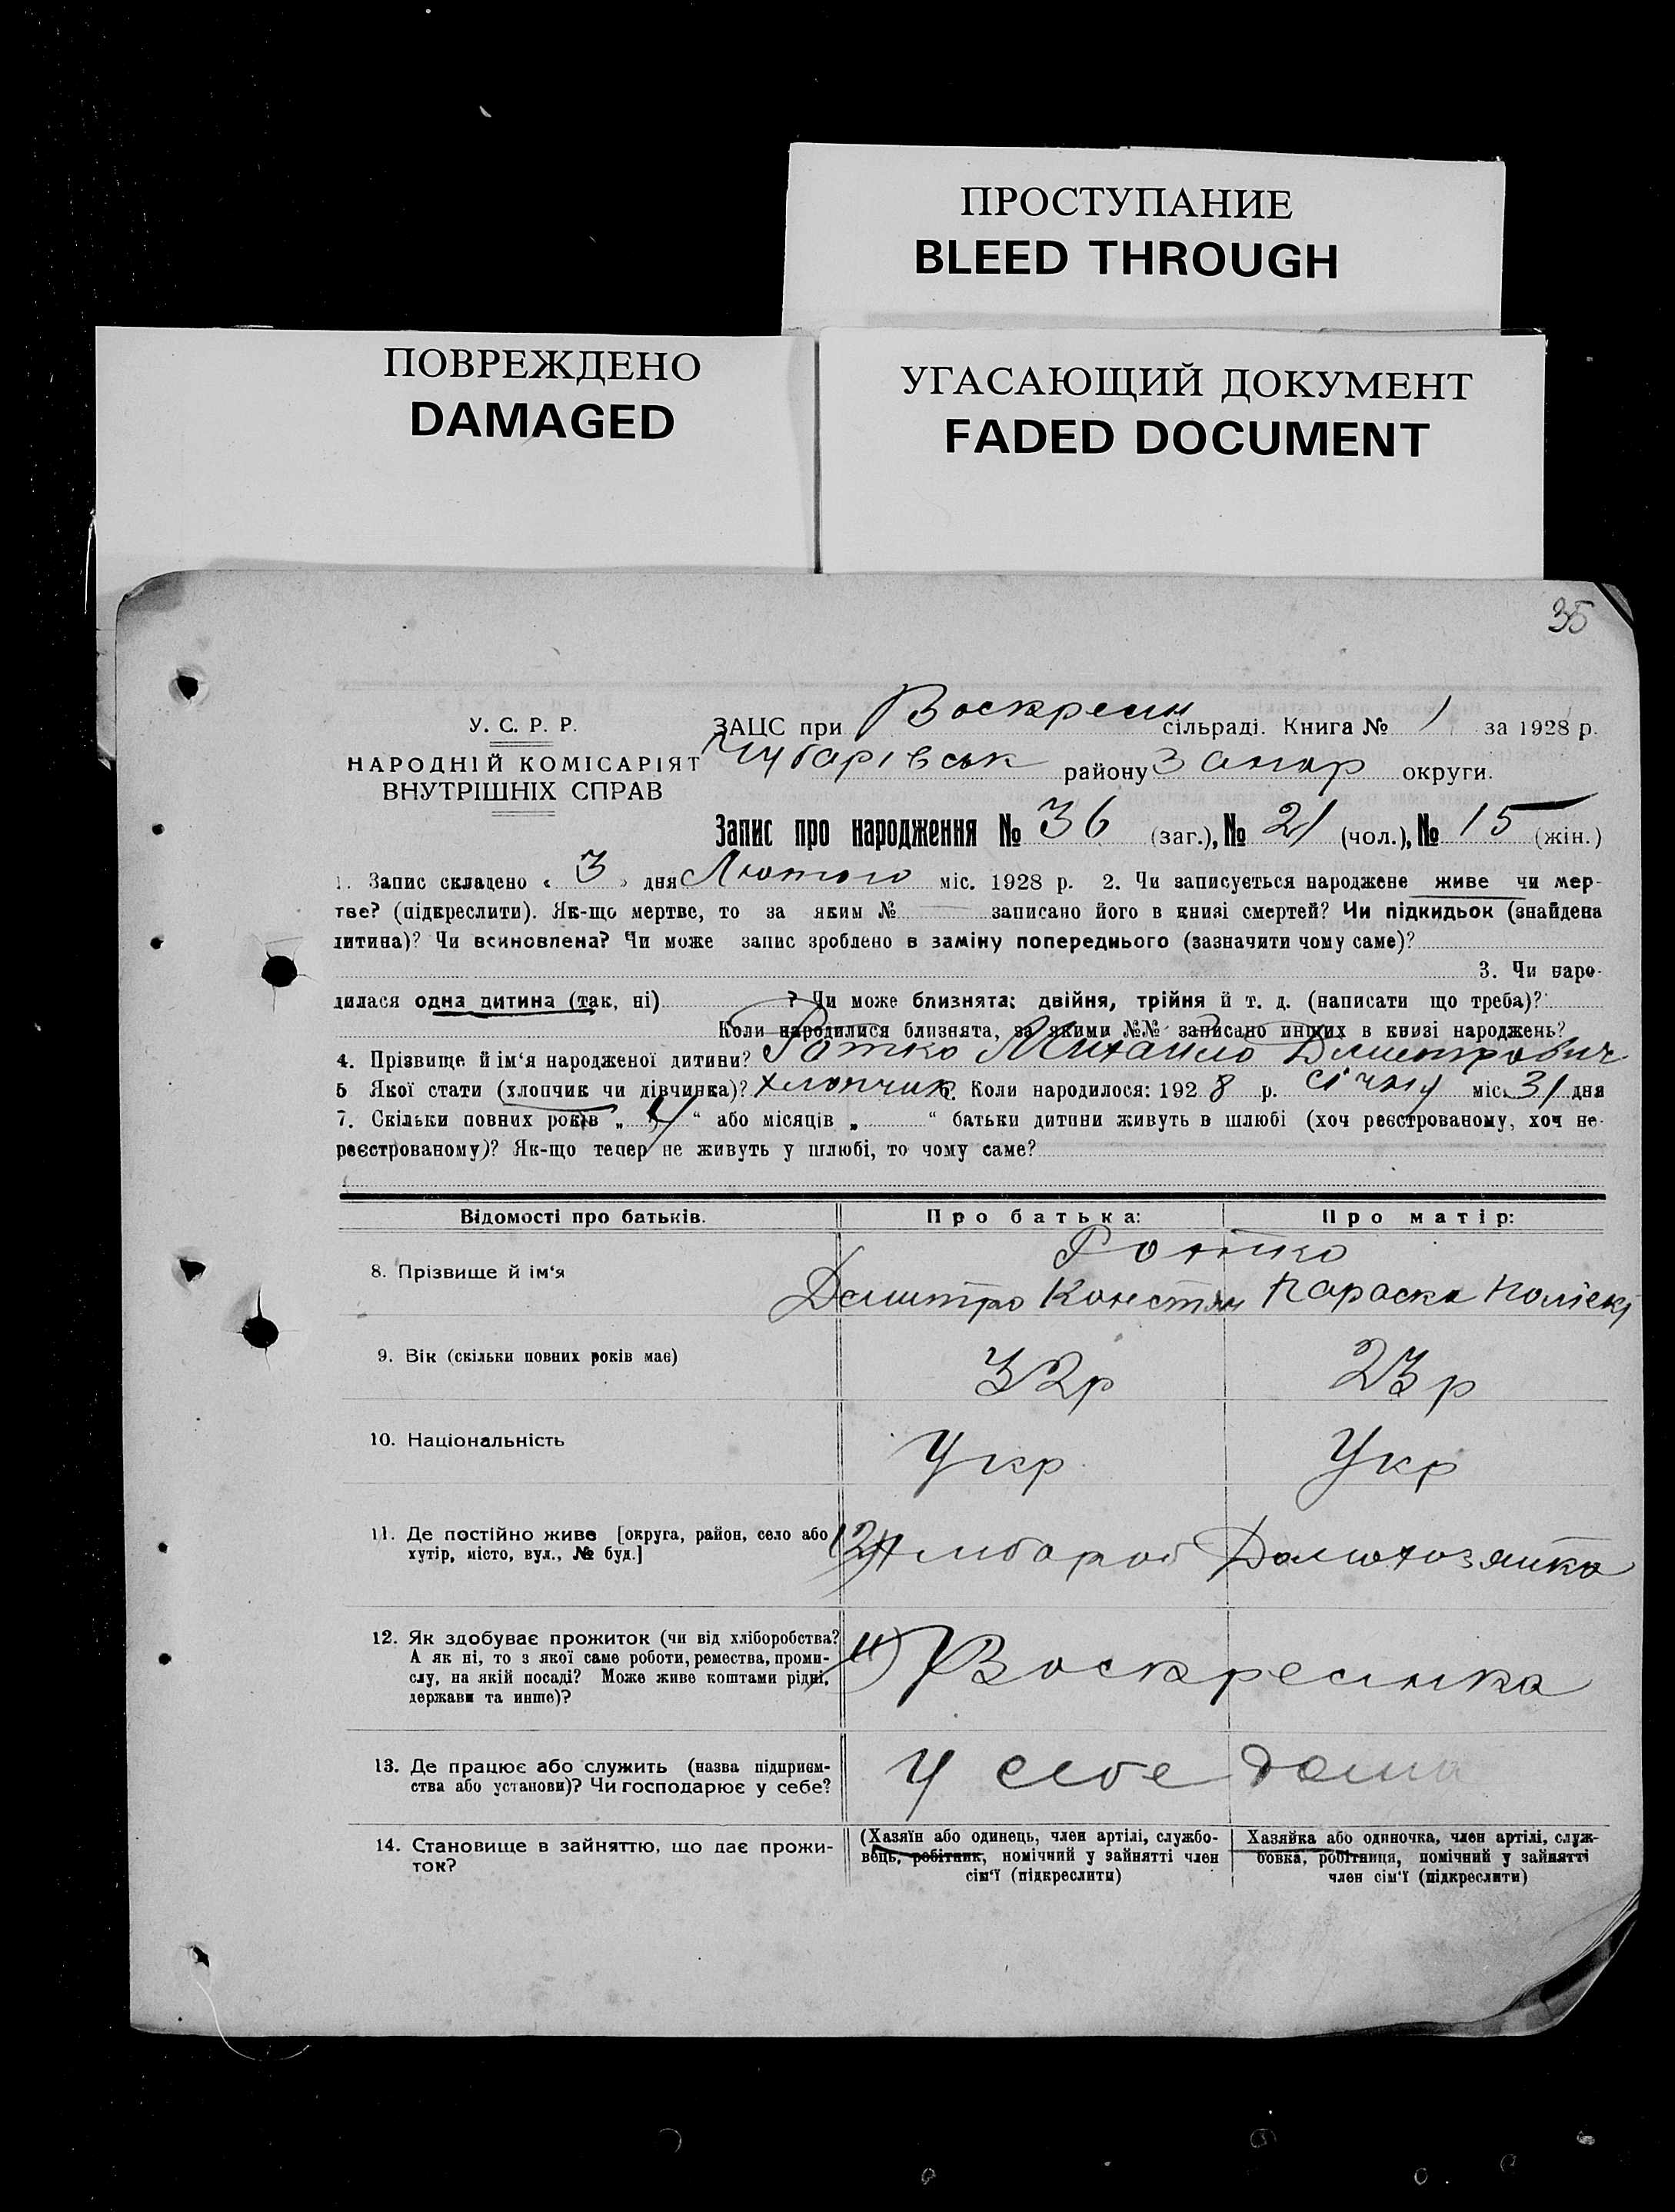 ПРОСТУПАНИЕ
BLEED THROUGH
ПОВРЕЖДЕНО
DAMAGED
УГАСАЮЩИЙ ДОКУМЕНТ
FADED DOCUMENT
35
У. С. Р. Р.
НАРОДНІЙ КОМІСАРІЯТ
ВНУТРІШНІХ СПРАВ
ЗАЦС при Воскресен сільраді. Книга № 1 за 1928 р.
Чубарівськ району Запор округи.
Запис про народження № 36 (заг.), № 21 (чол.), № 15 (жін.)
1. Запис складено « 3 » дня Лютого міс. 1928 р. 2. Чи записується народжене живе чи мер-
тве? (підкреслити). Як-що мертве, то за яким № записано його в книзі смертей? Чи підкидьок (знайдена
дитина)? Чи всиновлена? Чи може запис зроблено в заміну попереднього (зазначити чому саме)?
3. Чи наро-
дилася одна дитина (так, ні) ? Чи може близнята: двійня, трійня й т. д. (написати що треба)?
Коли народилися близнята, за якими №№ записано инших в книзі народжень?
4. Прізвище й ім‘я народженої дитини? Ротко Михайло Дмитрович
5 Якої стати (хлопчик чи дівчинка)? хлопчик 6. Коли народилося: 192 8 р. січну міс. 31 дня
7. Скільки повних років „ 4 “ або місяців „ “ батьки дитини живуть в шлюбі (хоч реєстрованому, хоч не-
реєстрованому)? Як-що тепер не живуть у шлюбі, то чому саме?
Відомості про батьків. Про батька: Про матір:
8. Прізвище й ім‘я
Ротко
Дмитро Констян Параска
9. Вік (скільки повних років має) 32р 23р
10. Національність Укр Укр
11. Де постійно живе [округа, район, село або
хутір, місто, вул., № буд.]
12) Домохозяйка
12. Як здобуває прожиток (чи від хліборобства?
А як ні, то з якої саме роботи, ремества, проми-
слу, на якій посаді? Може живе коштами рідні,
держави та инше)?
11) Воскресенка
13. Де працює або служить (назва підприєм-
ства або установи)? Чи господарює у себе?
У себе дома
14. Становище в зайняттю, що дає прожи-
ток?
(Хазяїн або одинець, член артілі, службо-
вець, робітник, помічний у зайнятті член
сім‘ї (підкреслити)
Хазяйка або одиночка, член артілі, служ-
бовка, робітниця, помічний у зайнятті
член сім‘ї (підкреслити)